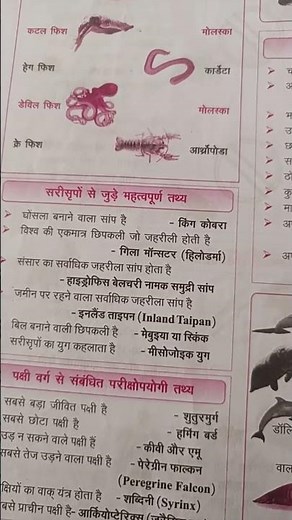 कटल फिश मोलस्का
हेग फिश कार्डेटा
डेविल फिश मोलस्का
क्रे फिश आर्थ्रोपोडा
सरीसृपों से जुड़े महत्वपूर्ण तथ्य
घोंसला बनाने वाला सांप है - किंग कोबरा
विश्व की एकमात्र छिपकली जो जहरीली होती है
- गिला मॉन्सटर (हिलोडर्मा)
संसार का सर्वाधिक जहरीला सांप होता है
- हाइड्रोफिस बेलचरी नामक समुद्री सांप
जमीन पर रहने वाला सर्वाधिक जहरीला सांप है
- इनलैंड ताइपन (Inland Taipan)
बिल बनाने वाली छिपकली है - मेबुइया या स्किंक
सरीसृपों का युग कहलाता है - मीसोजोइक युग
पक्षी वर्ग से संबंधित परीक्षोपयोगी तथ्य
सबसे बड़ा जीवित पक्षी है - शुतुरमुर्ग
सबसे छोटा पक्षी है - हमिंग बर्ड
उड़ न सकने वाले पक्षी हैं - कीवी और एमू
सबसे तेज उड़ने वाला पक्षी है - पेरेग्रीन फाल्कन
(Peregrine Falcon)
क्षियों का वाक् यंत्र होता है - शब्दिनी (Syrinx)
सबसे प्राचीन पक्षी है- आर्कियोप्टेरिक्स